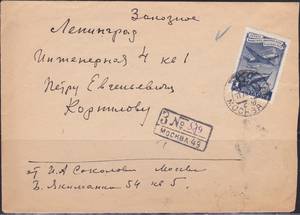 Заказное
Ленинград
Инженерная 4 кв 1
Петру Евгеньевичу
Корнилову
З №
МОСКВА 49
МОСКВА
от И.А Соколова Москва
Б. Якиманка 54 кв 5.